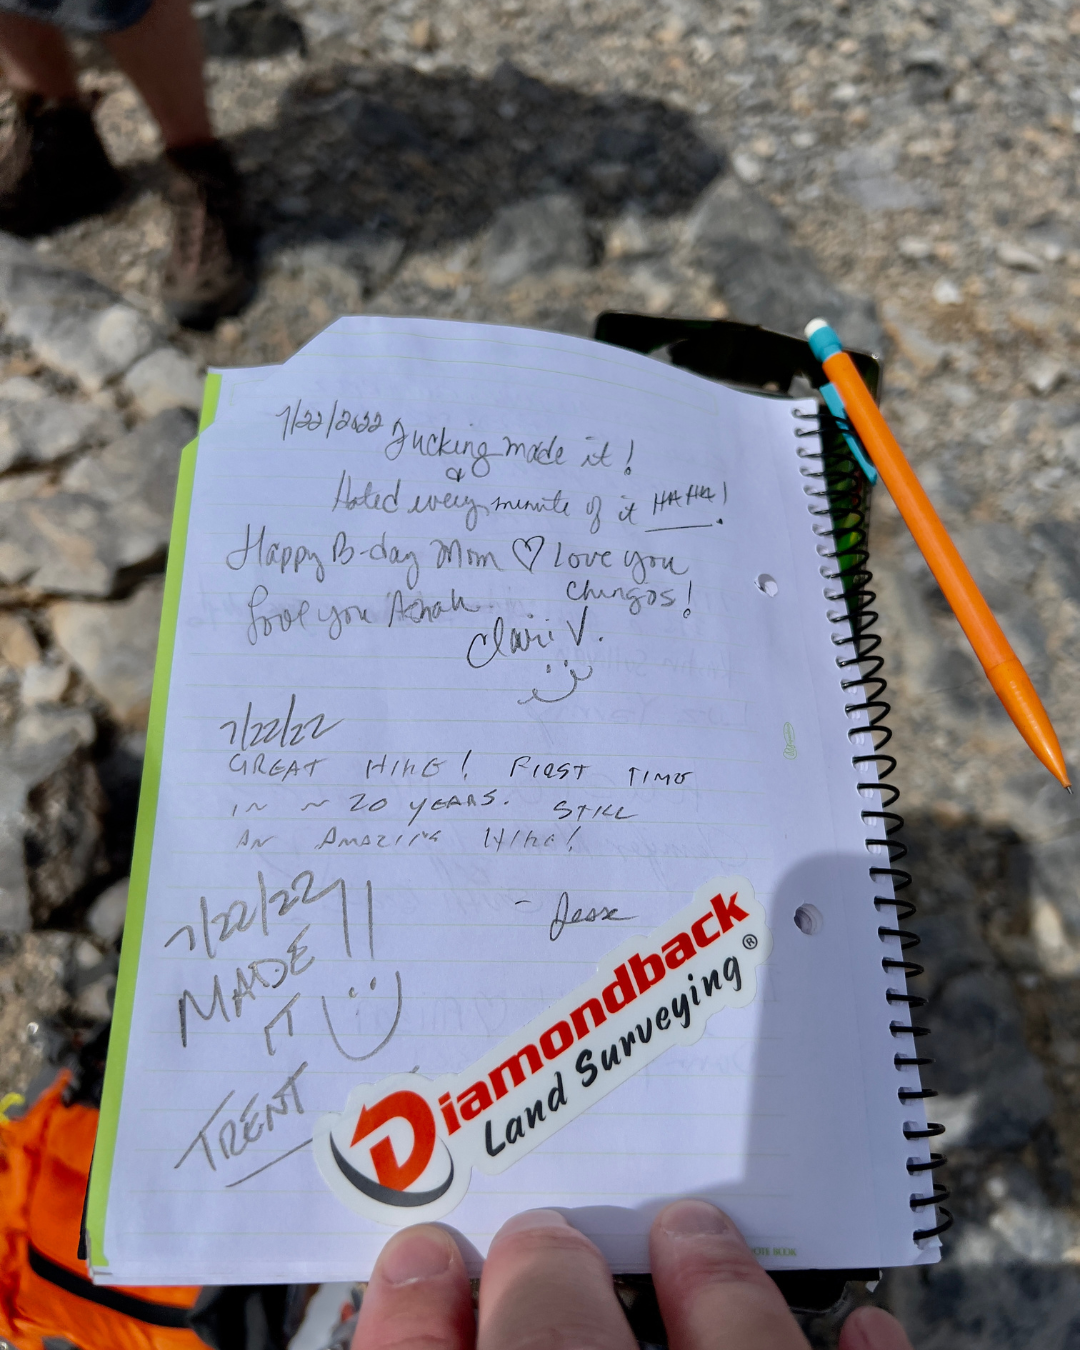 7/22/2022 Fucking made it!
&
Hated every minute of it HAHA!
Happy B-day Mom ♡ Love you
Chungos!
Love you
Clair V.
7/22/22
GREAT HIKE! FIRST TIME
IN ~ 20 YEARS. STILL
AN AMAZING HIKE!
- Jesse
7/22/22
MADE !!
IT
TRENT
Diamondback®
Land Surveying